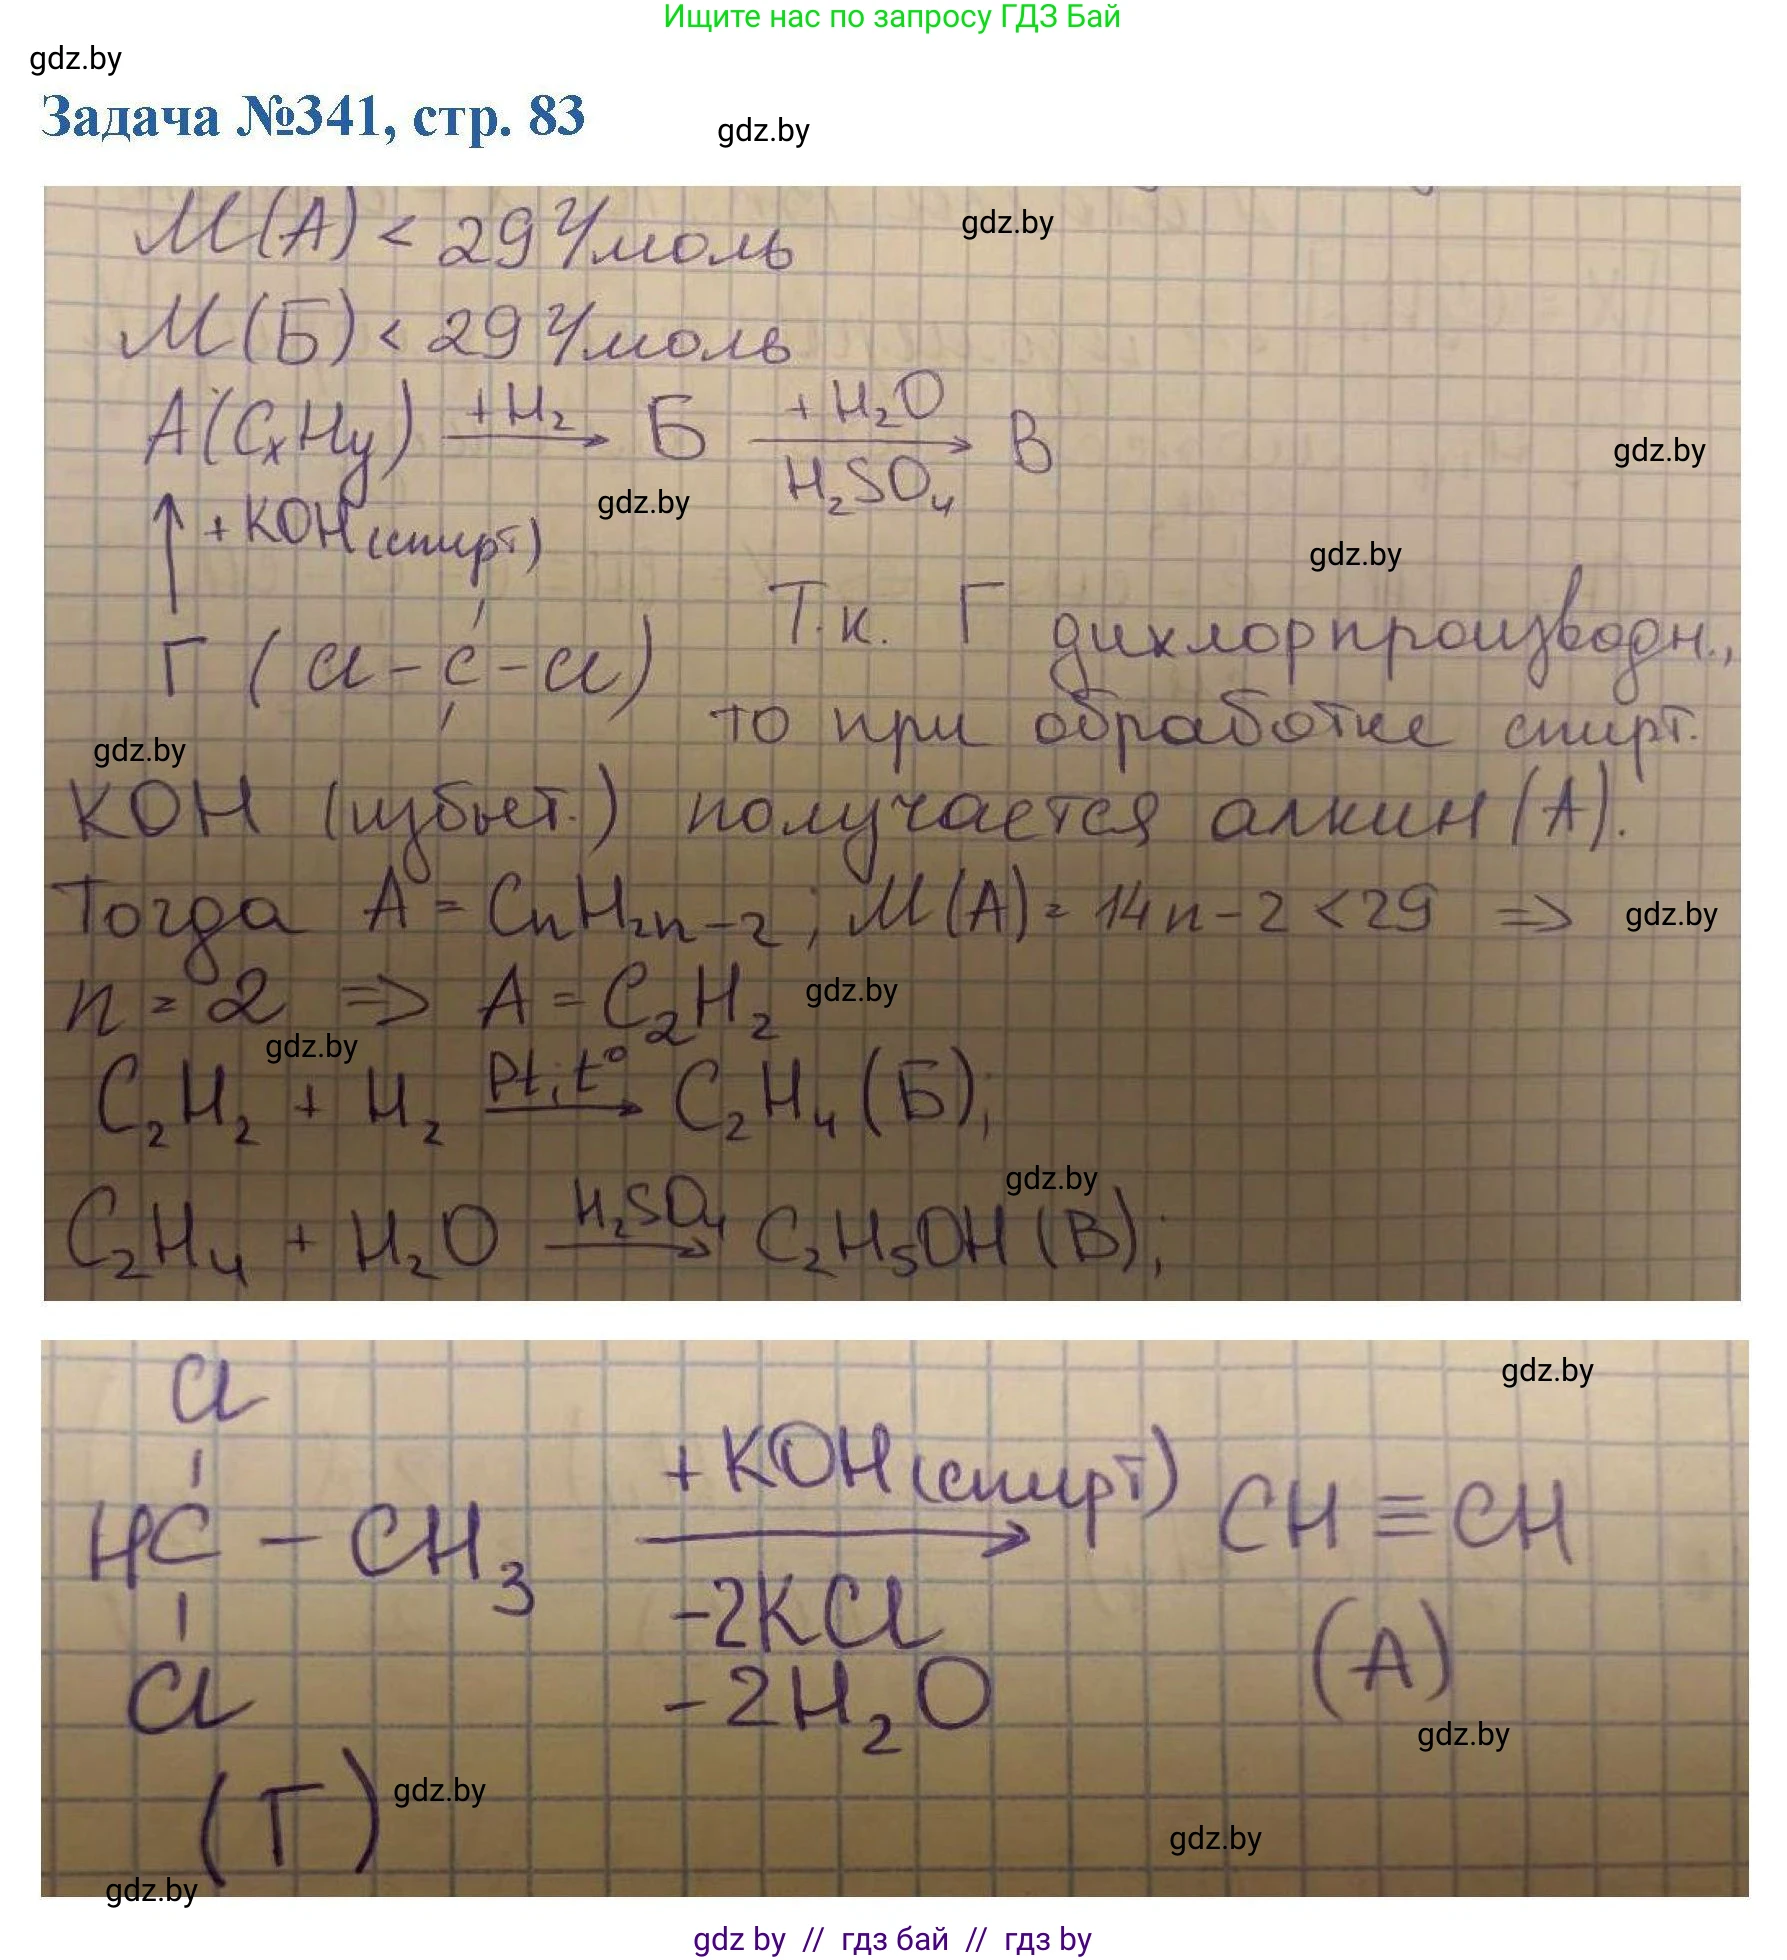 Ищите нас по запросу ГДЗ Бай
gdz.by
Задача №341, стр. 83
gdz.by
M(A) < 29 г/моль
gdz.by
M(Б) < 29 г/моль
A(CxHy) +H₂ → Б +H₂O → В
H₂SO₄
gdz.by
gdz.by
↑ + KOH (спирт)
gdz.by
Г (Cl - C - Cl)
Т.к. Г дихлорпроизводн.,
то при обработке спирт.
gdz.by
KOH (избыт.) получается алкин (А).
Тогда A = CnH2n-2; M(A) = 14n - 2 < 29 =>
gdz.by
n = 2 => A = C₂H₂
gdz.by
gdz.by
C₂H₂ + H₂ Pt, t° → C₂H₄ (Б);
gdz.by
C₂H₄ + H₂O H₂SO₄ → C₂H₅OH (В);
Cl
gdz.by
HC - CH₃ + KOH (спирт) → CH ≡ CH
-2KCl
Cl
-2H₂O
(A)
gdz.by
(Г)
gdz.by
gdz.by
gdz.by
gdz by // гдз бай // гдз by